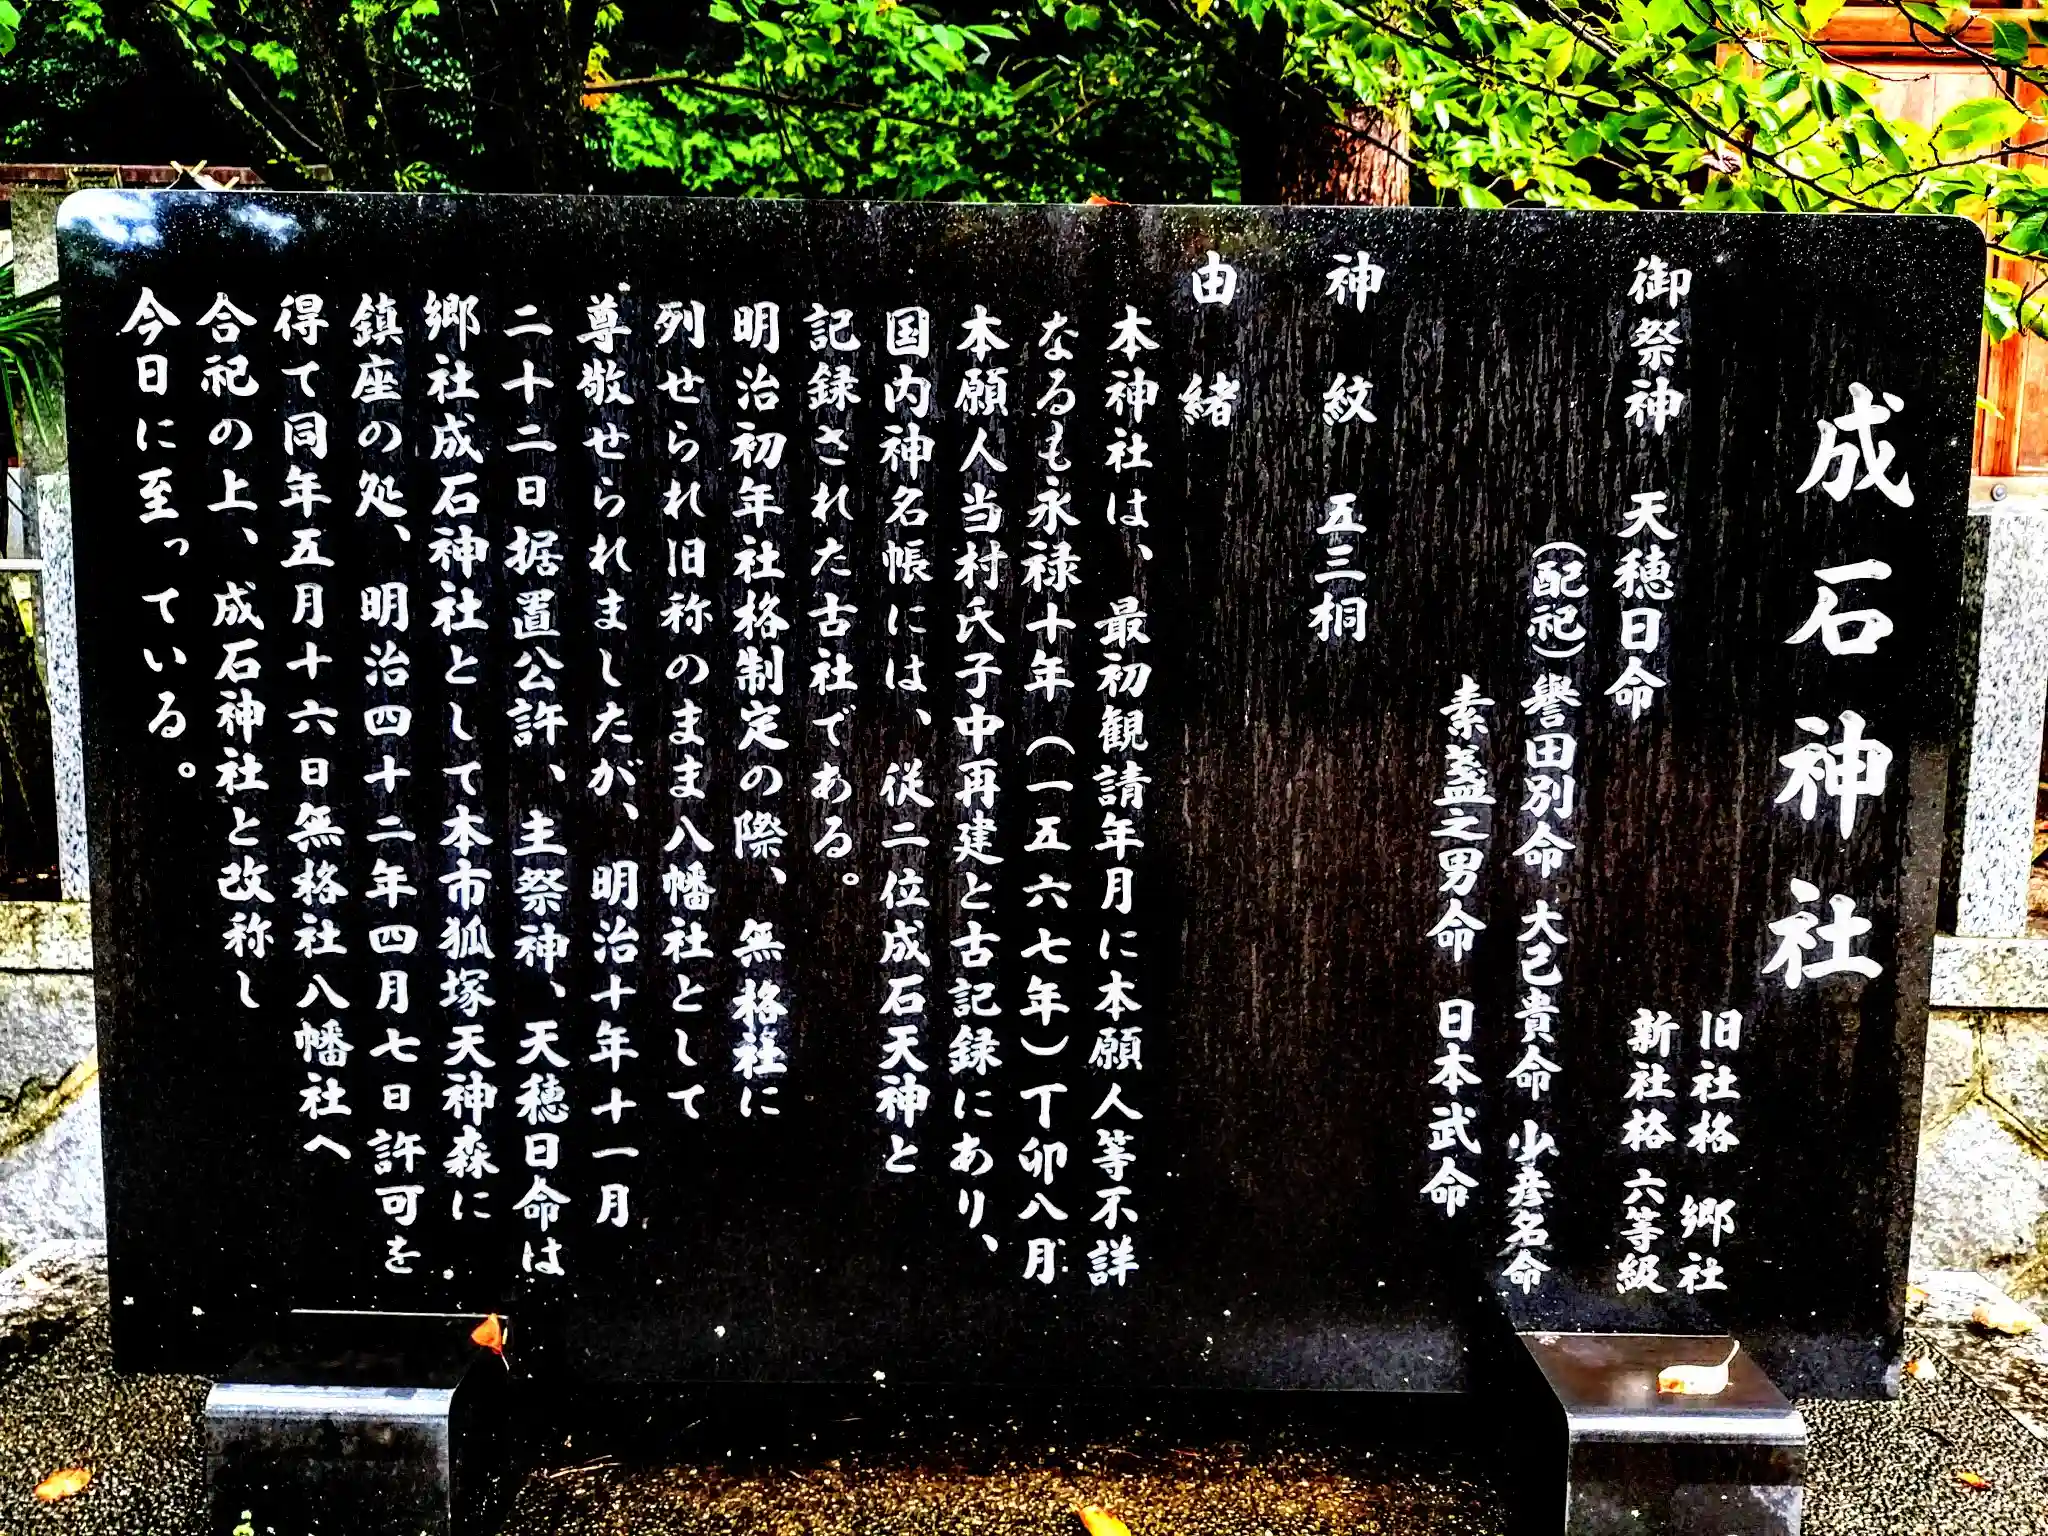 成石神社
旧社格 郷社
新社格 六等級
御祭神 天穂日命
（配祀）譽田別命 大己貴命 少彦名命
素盞之男命 日本武命
神紋 五三桐
由緒
本神社は、最初観請年月に本願人等不詳
なるも永禄十年（一五六七年）丁卯八月
本願人当村氏子中再建と古記録にあり、
国内神名帳には、従二位成石天神と
記録された古社である。
明治初年社格制定の際、無格社に
列せられ旧称のまま八幡社として
尊敬せられましたが、明治十年十一月
二十二日据置公許、主祭神、天穂日命は
郷社成石神社として本市狐塚天神森に
鎮座の処、明治四十二年四月七日許可を
得て同年五月十六日無格社八幡社へ
合祀の上、成石神社と改称し
今日に至っている。